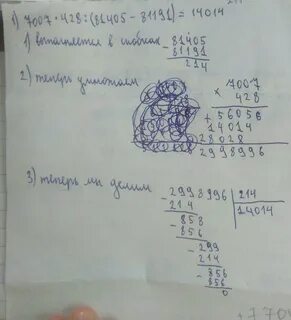 1) 7007 · 428 : (81405 - 81191) = 14014
1) выполняется в скобках
-81405
81191
214
2) теперь умножаем
7007
× 428
+ 56056
14014
28028
2998996
3) теперь мы делим
-2998996 | 214
214 | 14014
-858
856
-299
214
-856
856
0